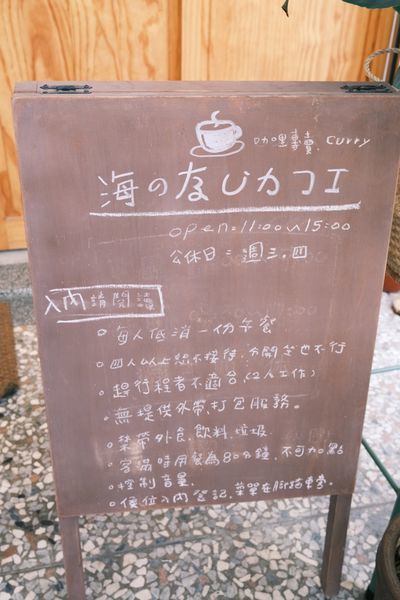 咖哩專賣 curry
海のなじカフェ
open=11:00~15:00
公休日:週三.四
入內請閱讀
每人低消一份午餐
四人以上恕不接待,分開坐也不行
趕行程者不適合(2人工作)
無提供外帶.打包服務。
禁帶外食.飲料.垃圾
客滿時用餐為80分鐘.不可加點
控制音量.
候位入內登記.菜單在腳踏車旁.